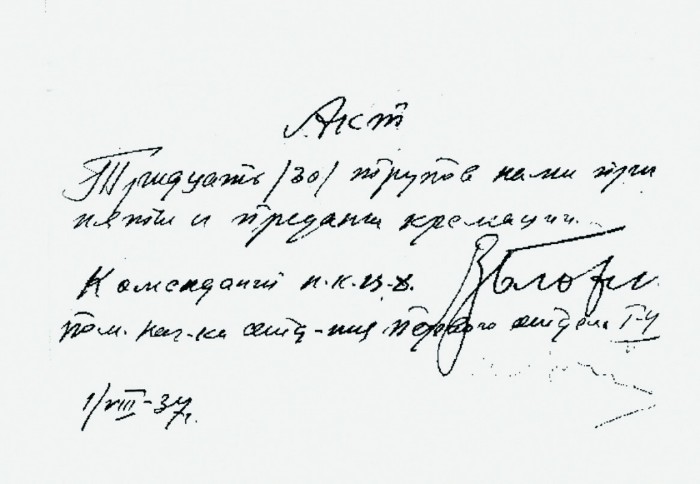 Акт
Тридцать /30/ трупов нами при
няты и преданы кремации.
Комендант Н.К.В.Д. Блохин
Пом. нач-ка отд-ния первого отдела Г-У
1/VIII-37г.